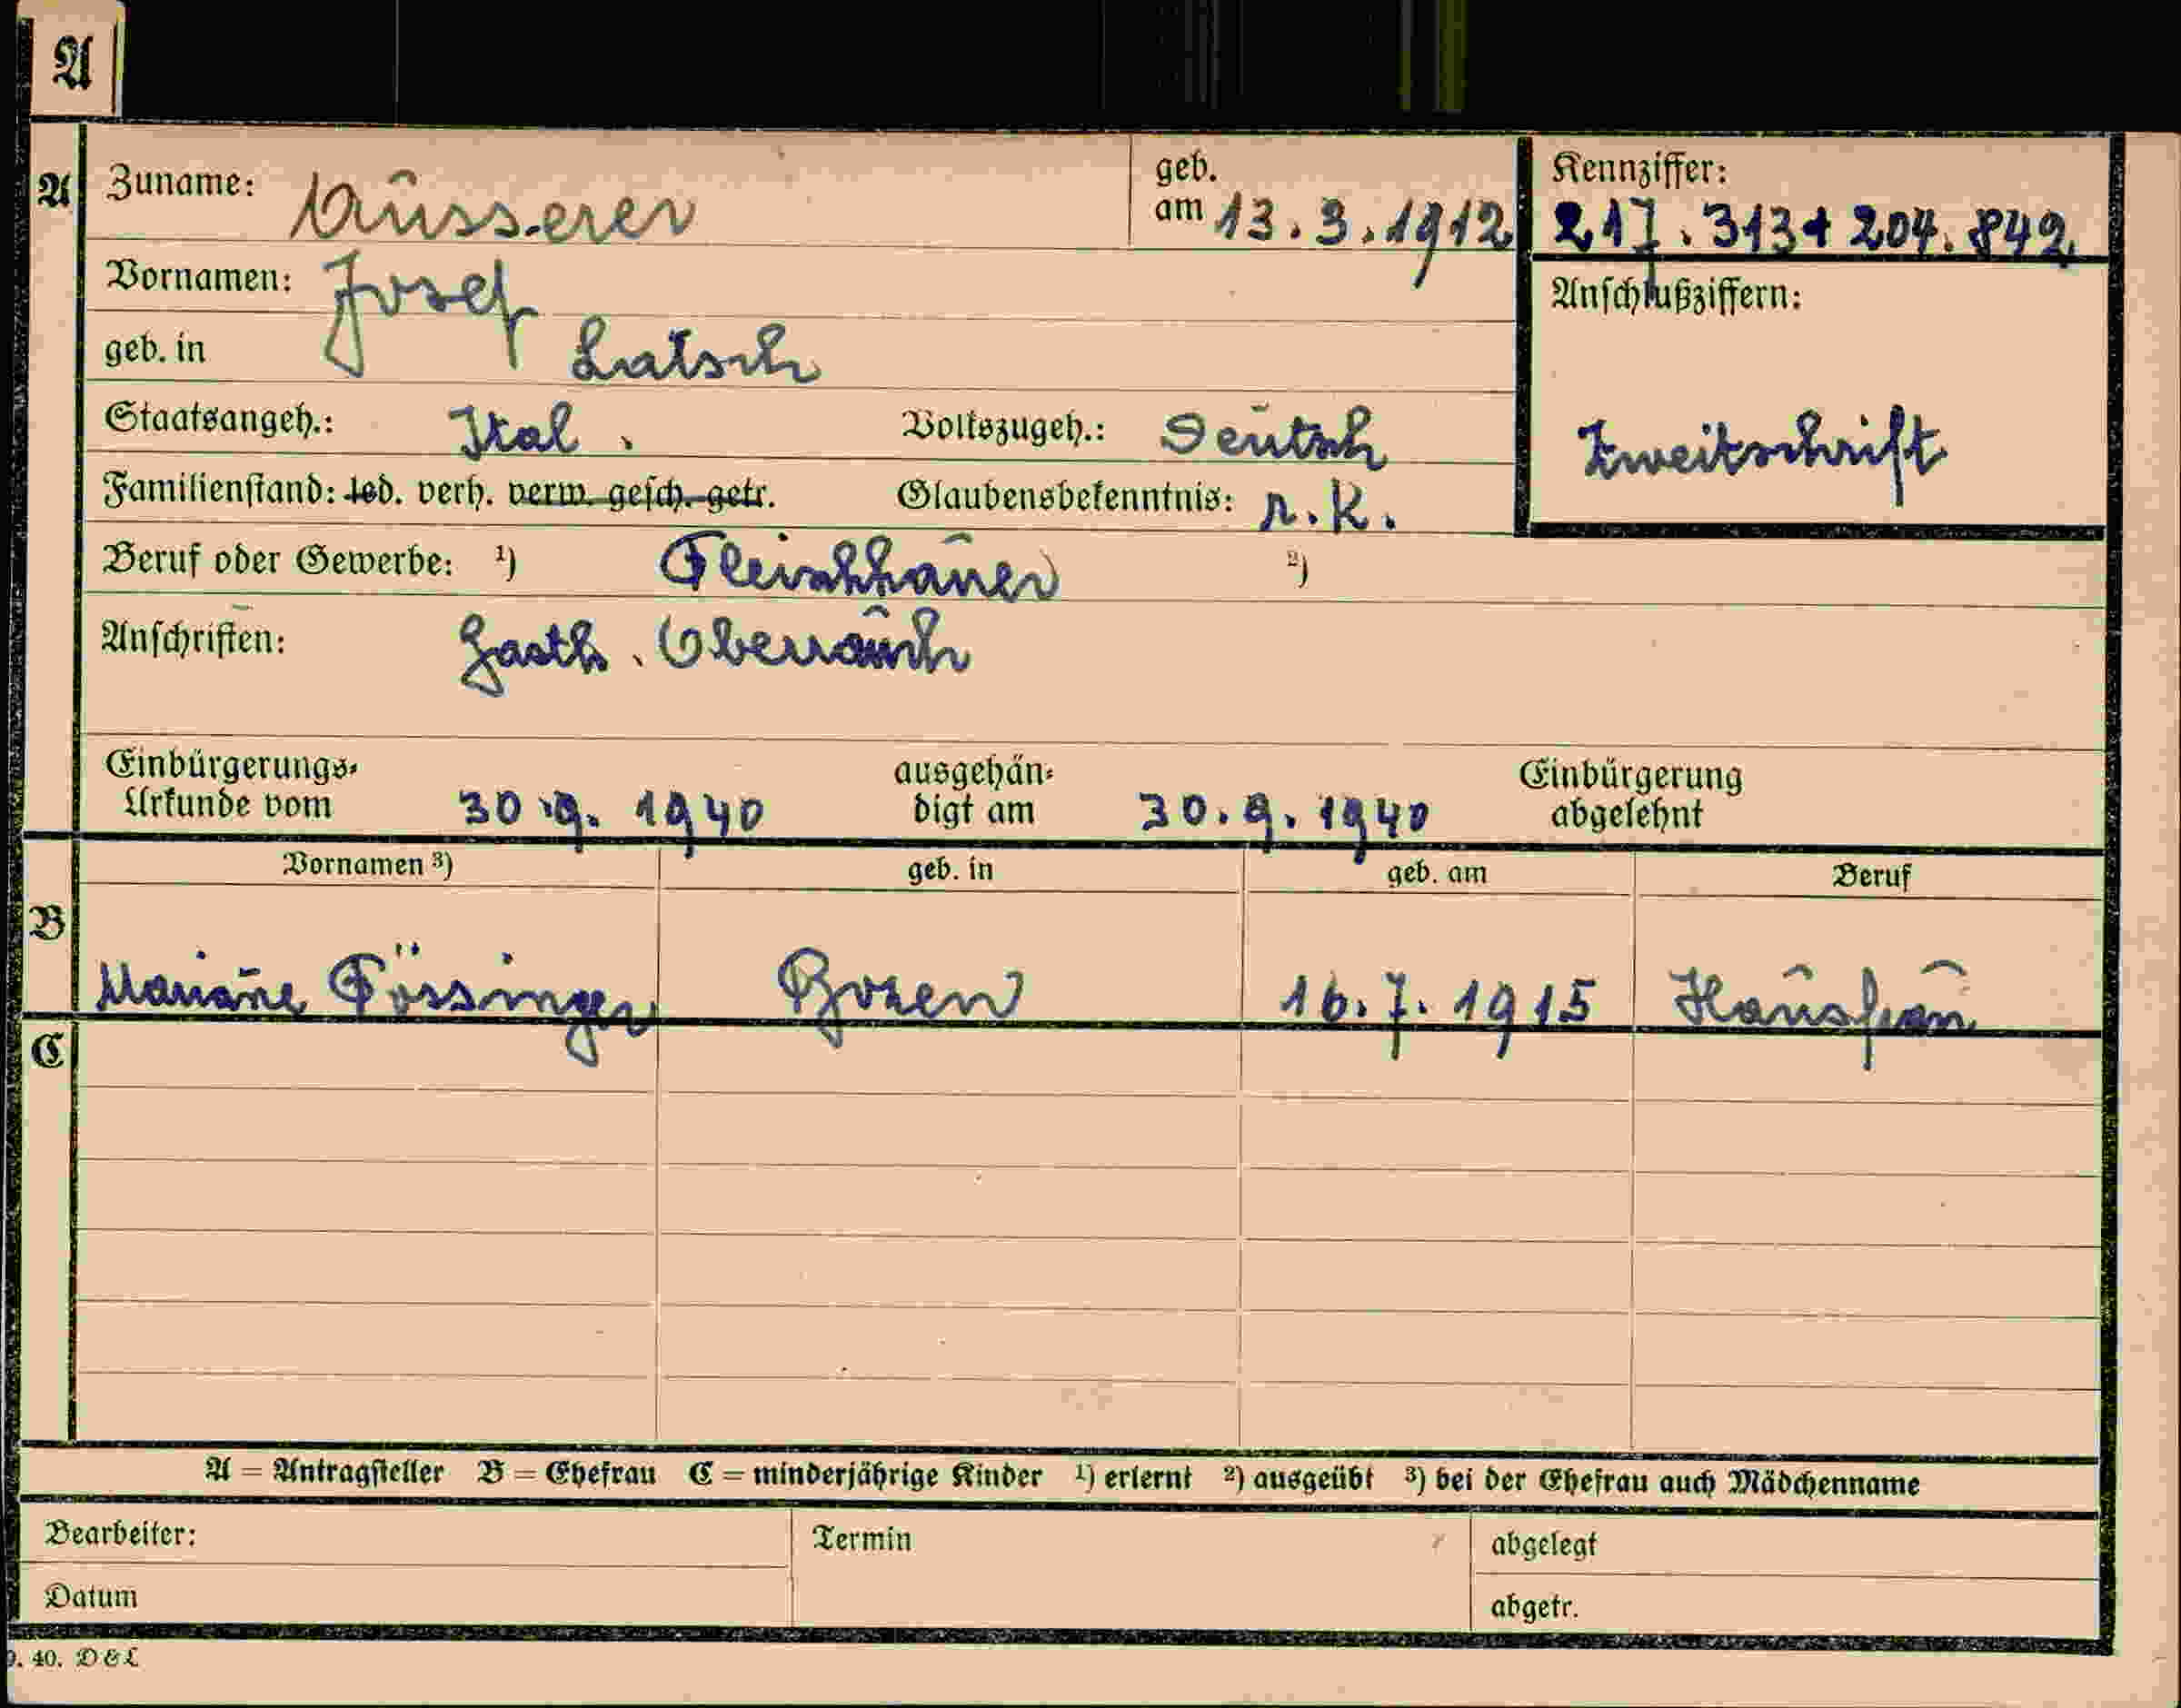 A
A Zuname: Ausserer geb. am 13.3.1912 Kennziffer: 217.313 + 204.842
Vornamen: Josef Anschlußziffern:
geb. in Latsch
Staatsangeh.: Ital. Volkszugeh.: Deutsch Zweitschrift
Familienstand: led. verh. verw. gesch. getr. Glaubensbekenntnis: r.k.
Beruf oder Gewerbe: ¹) Fleischhauer ²)
Anschriften: Gasth. Oberrauch
Einbürgerungs- ausgehän- Einbürgerung
Urkunde vom 30.9.1940 digt am 30.9.1940 abgelehnt
Vornamen ³) geb. in geb. am Beruf
B
Mariane Pössinger Bozen 16.7.1915 Hausfrau
C
A = Antragsteller B = Ehefrau C = minderjährige Kinder ¹) erlernt ²) ausgeübt ³) bei der Ehefrau auch Mädchenname
Bearbeiter: Termin abgelegt
Datum abgetr.
40. D & L